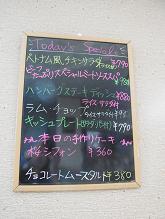 Today's Special
ベトナム風チキンサラダ
¥790
たっぷりスペシャルミートソーススパ
¥980
ハンバーグステーキディッシュ
¥880
ライスサラダ付
ラム・チョップ
ライスサラダ付
¥980
キッシュプレート(サラダパン付)¥790
本日の手作りケーキ
桜シフォン ¥360
チョコレートムースタルト ¥380